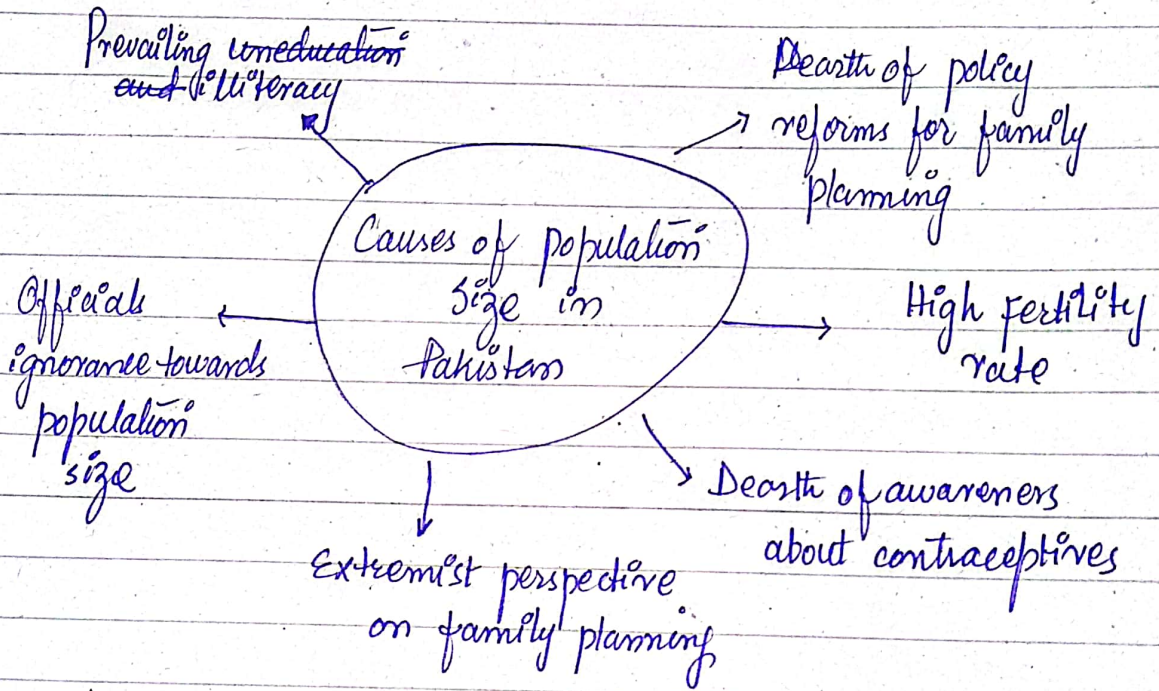 Prevailing uneducation
and illiteracy
Dearth of policy
reforms for family
planning
Causes of population
size in
Pakistan
Officials
ignorance towards
population
size
High fertility
rate
Dearth of awareness
about contraceptives
Extremist perspective
on family planning